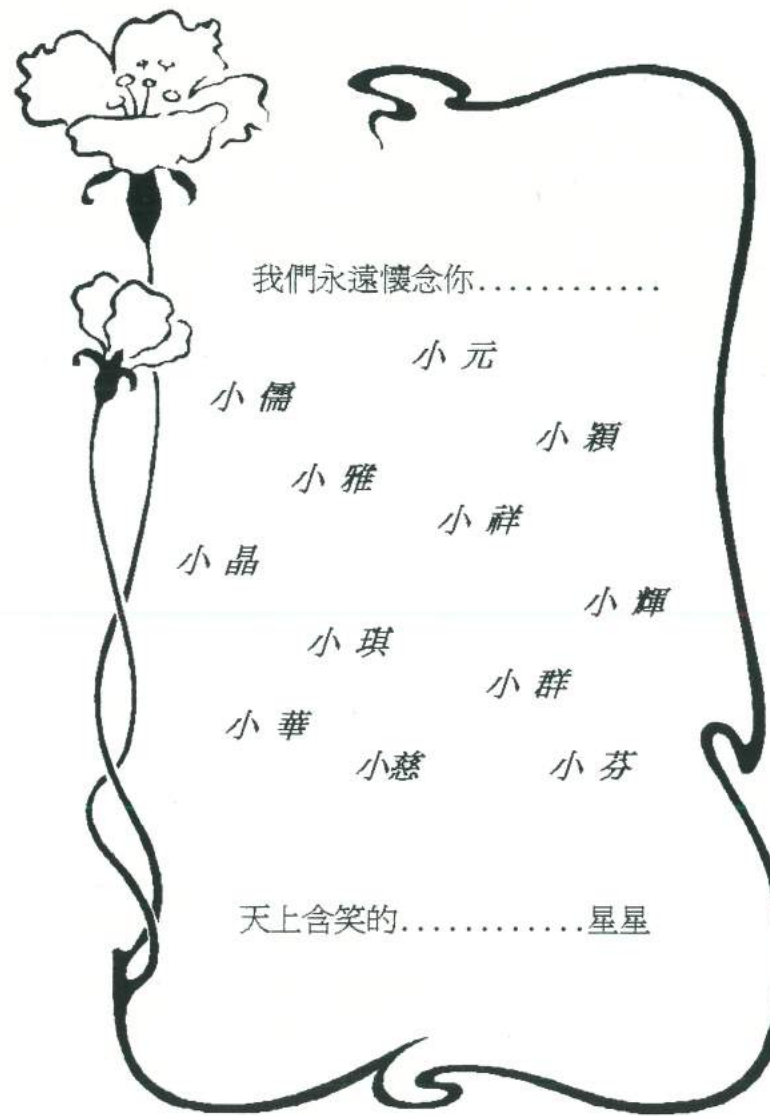 我們永遠懷念你............
小 元
小 儒
小 穎
小 雅
小 祥
小 晶
小 輝
小 琪
小 群
小 華
小慈 小 芬
天上含笑的............星星